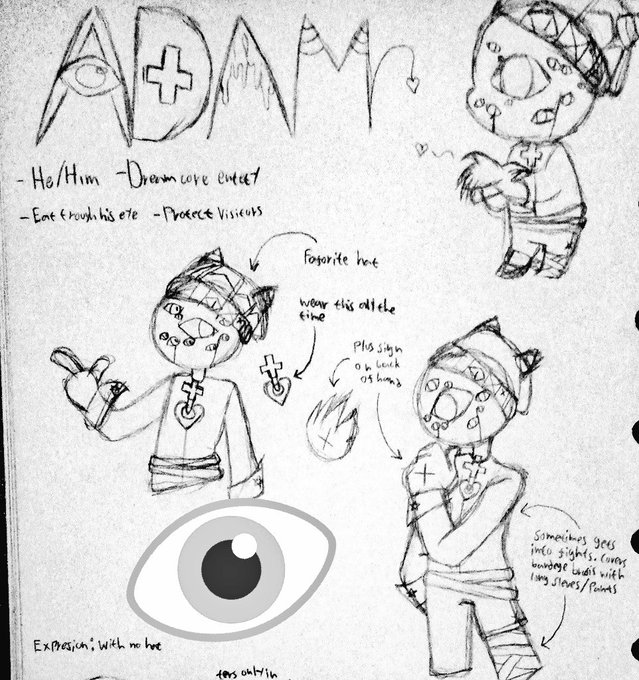 ADAM
- He/Him - Dreamcore entety
- Eat trough his eye - Protect Visitors
Faforite hat
wear this all the
time
Plus sign
on back
of hand
Sometimes gets
into fights. Covers
bandege with
long sleves/Pants
Expresion: with no hat
ters only in